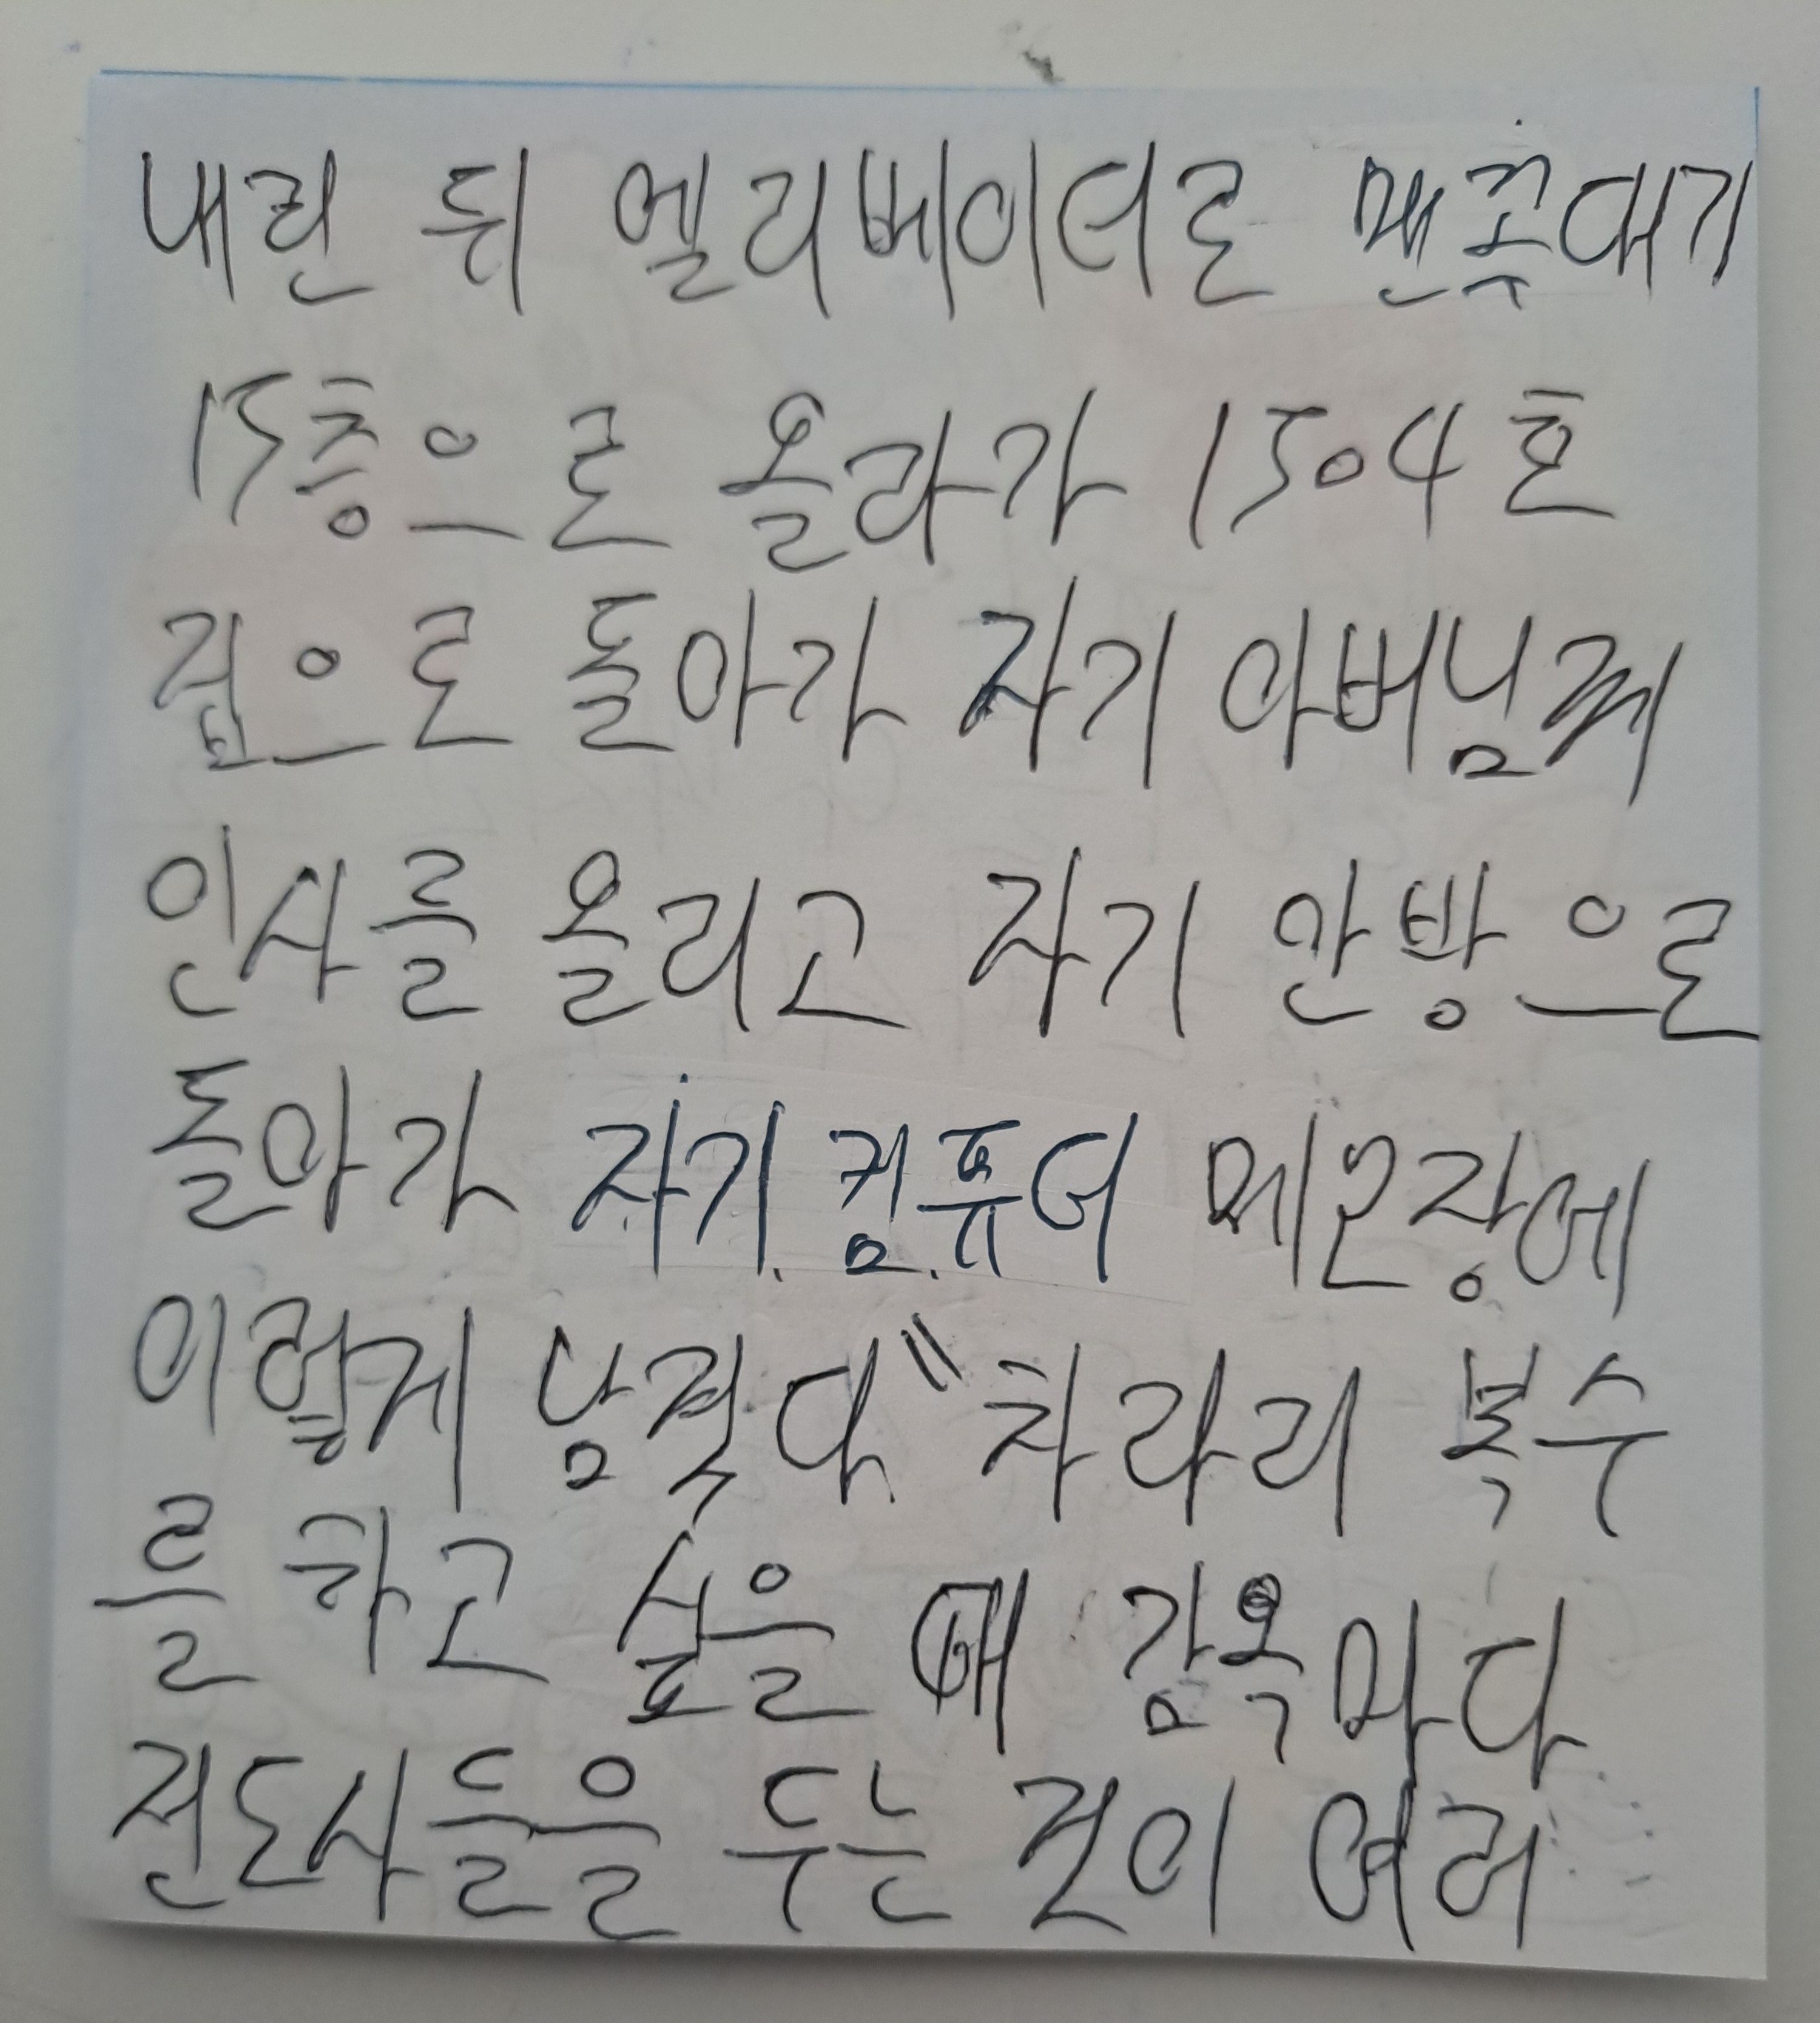 내린 뒤 엘리베이터로 맨꼭대기
15층으로 올라가 1504호
집으로 돌아가 자기 아버님께
인사를 올리고 자기 안방으로
돌아가 자기 컴퓨터 메모장에
이렇게 남겼다 "차라리 복수
를 하고 싶을 때 감옥마다
전도사들을 두는 것이 여러